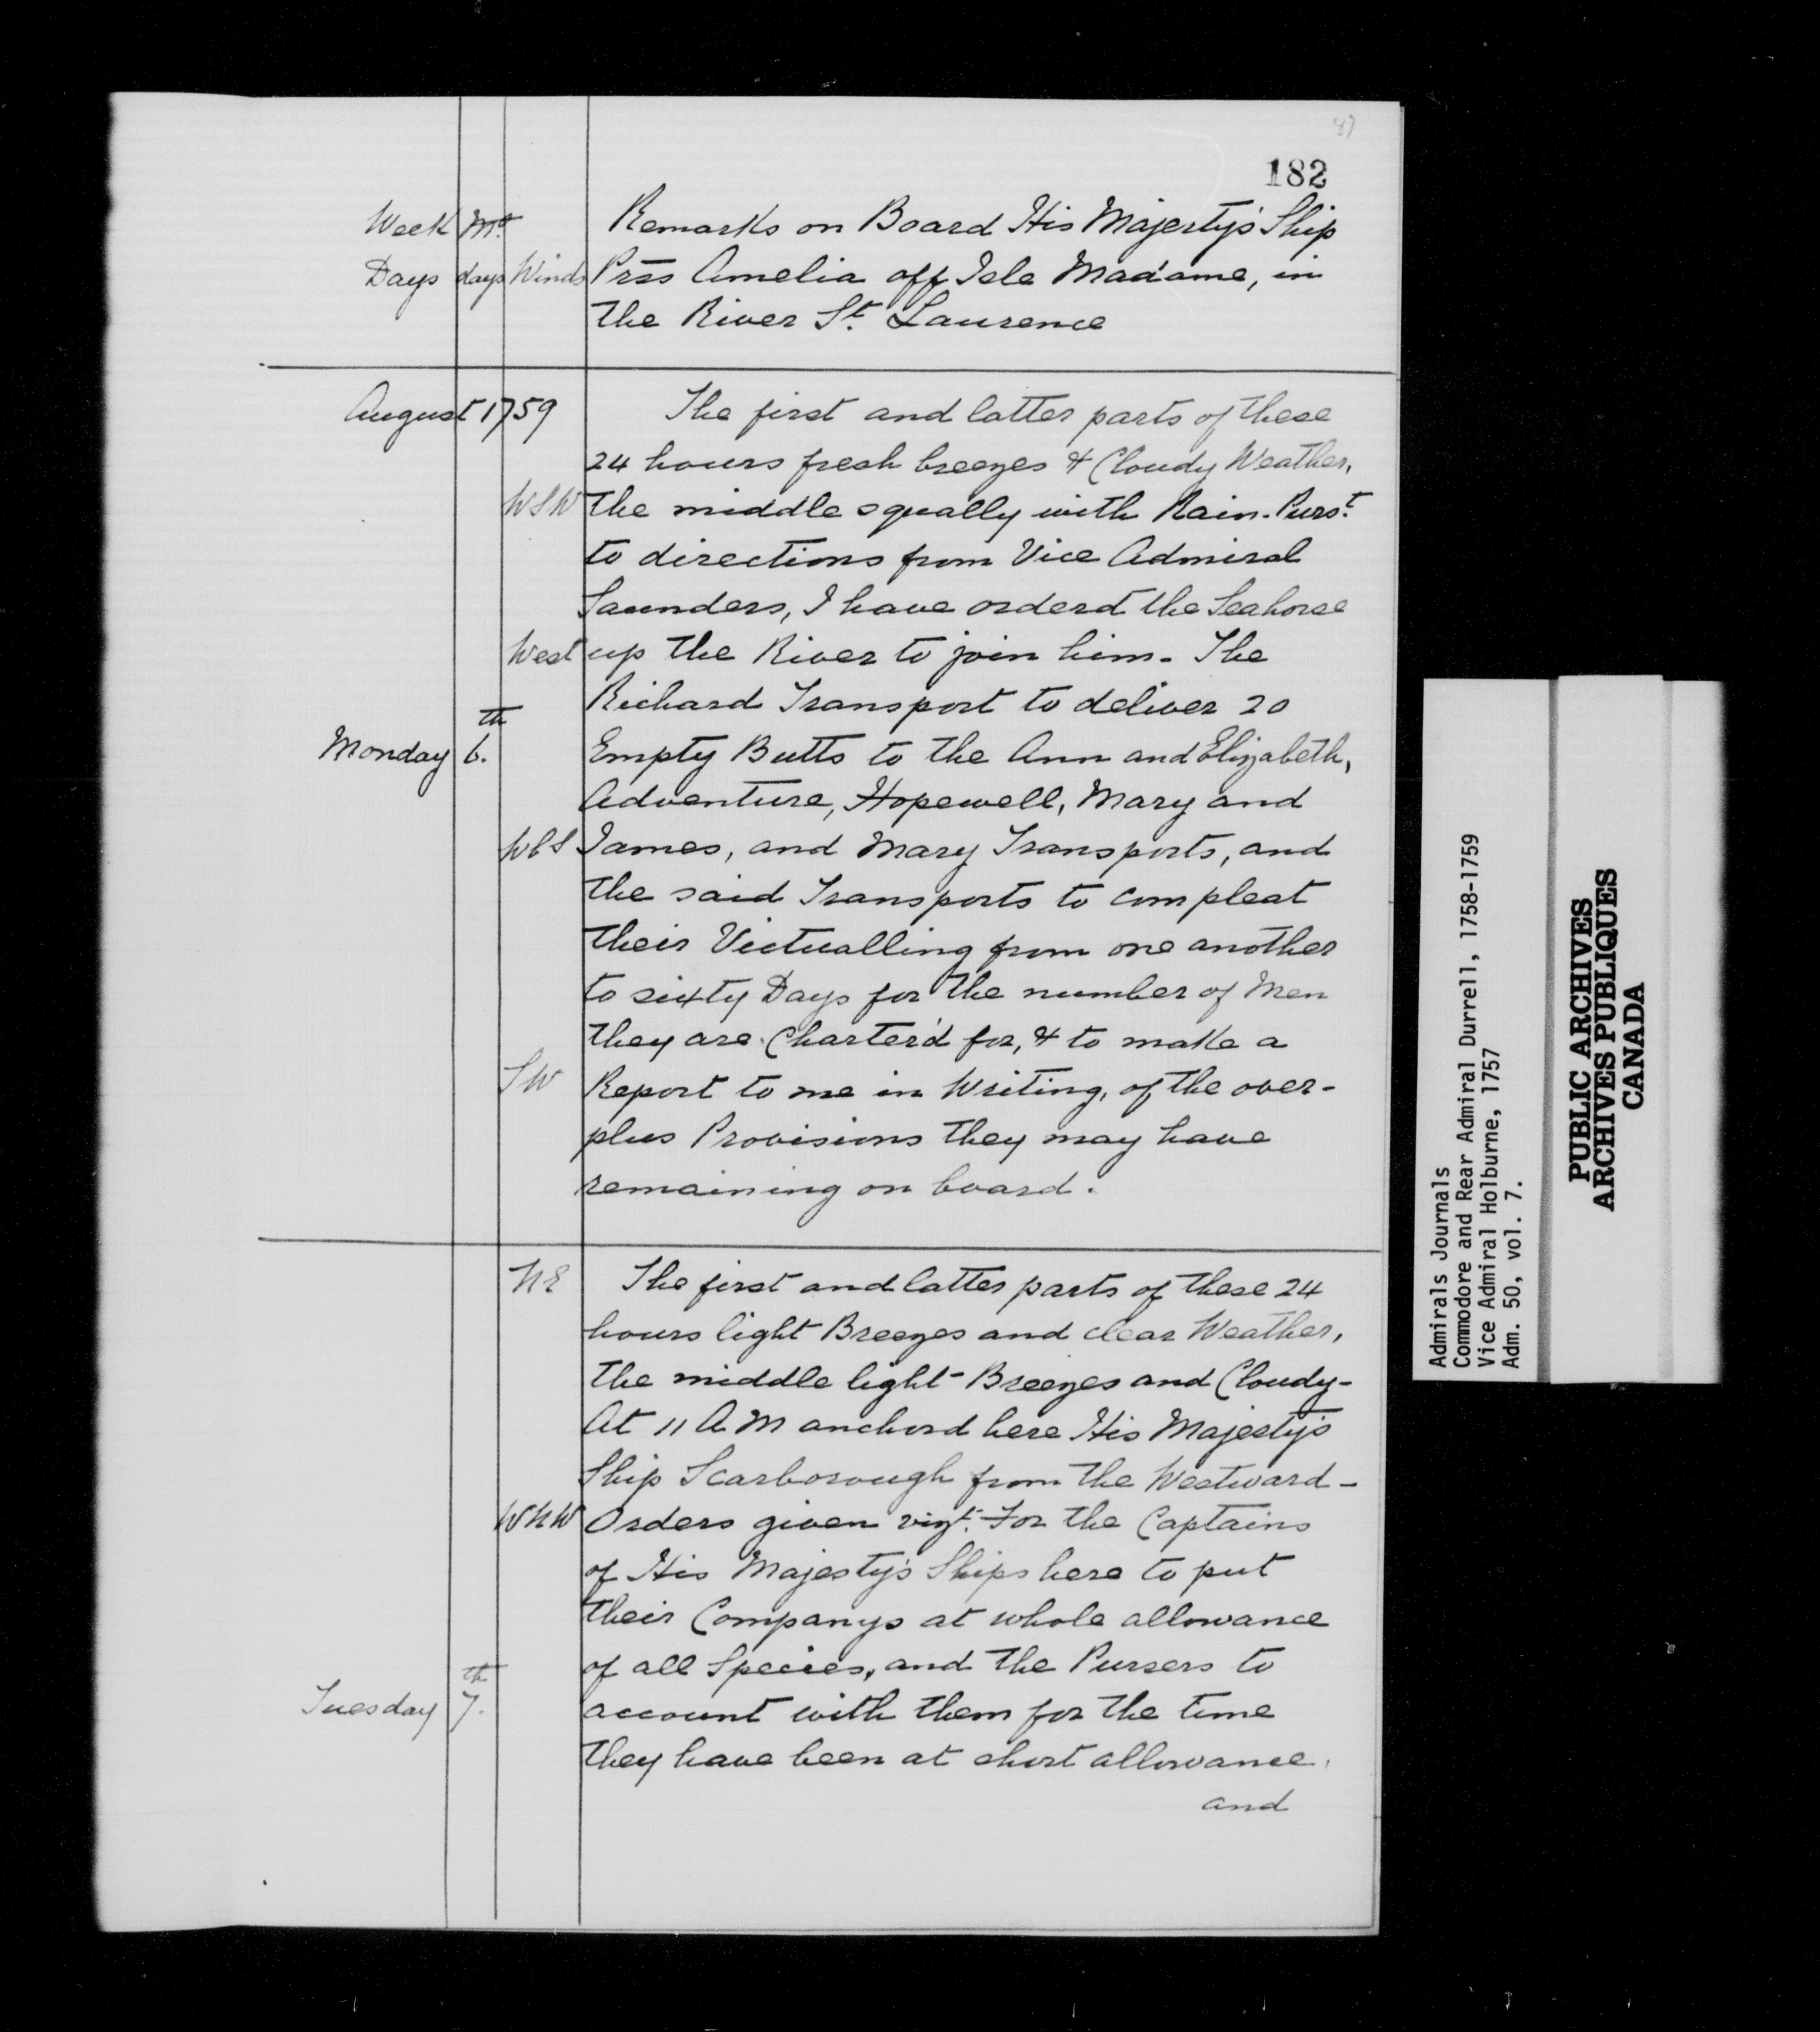 87
182
Week Mo. Remarks on Board His Majesty's Ship
Days days Winds Prss Amelia off Isle Madame, in
the River St. Laurence
August 1759 The first and latter parts of these
24 hours fresh breezes & Cloudy Weather,
WSW the middle squally with Rain. Purst.
to directions from Vice Admiral
Saunders, I have orderd the Seahorse
West up the River to join him. The
Richard Transport to deliver 20
Monday 6.th Empty Butts to the Ann and Elizabeth,
Adventure, Hopewell, Mary and
WbS James, and Mary Transports, and
the said Transports to compleat
their Victualling from one another
to sixty Days for the number of Men
they are Charter'd for, & to make a
SW Report to me in Writing, of the over-
plus Provisions they may have
remaining on board.
NE The first and latter parts of these 24
hours light Breezes and clear Weather,
the middle light Breezes and Cloudy-
At 11 AM anchord here His Majesty's
Ship Scarborough from the Westward-
WNW Orders given vizt. For the Captains
of His Majesty's Ships here to put
their Companys at whole allowance
of all Species, and the Pursers to
Tuesday 7.th account with them for the time
they have been at short allowance,
and
Admirals Journals
Commodore and Rear Admiral Durrell, 1758-1759
Vice Admiral Holburne, 1757
Adm. 50, vol. 7.
PUBLIC ARCHIVES
ARCHIVES PUBLIQUES
CANADA